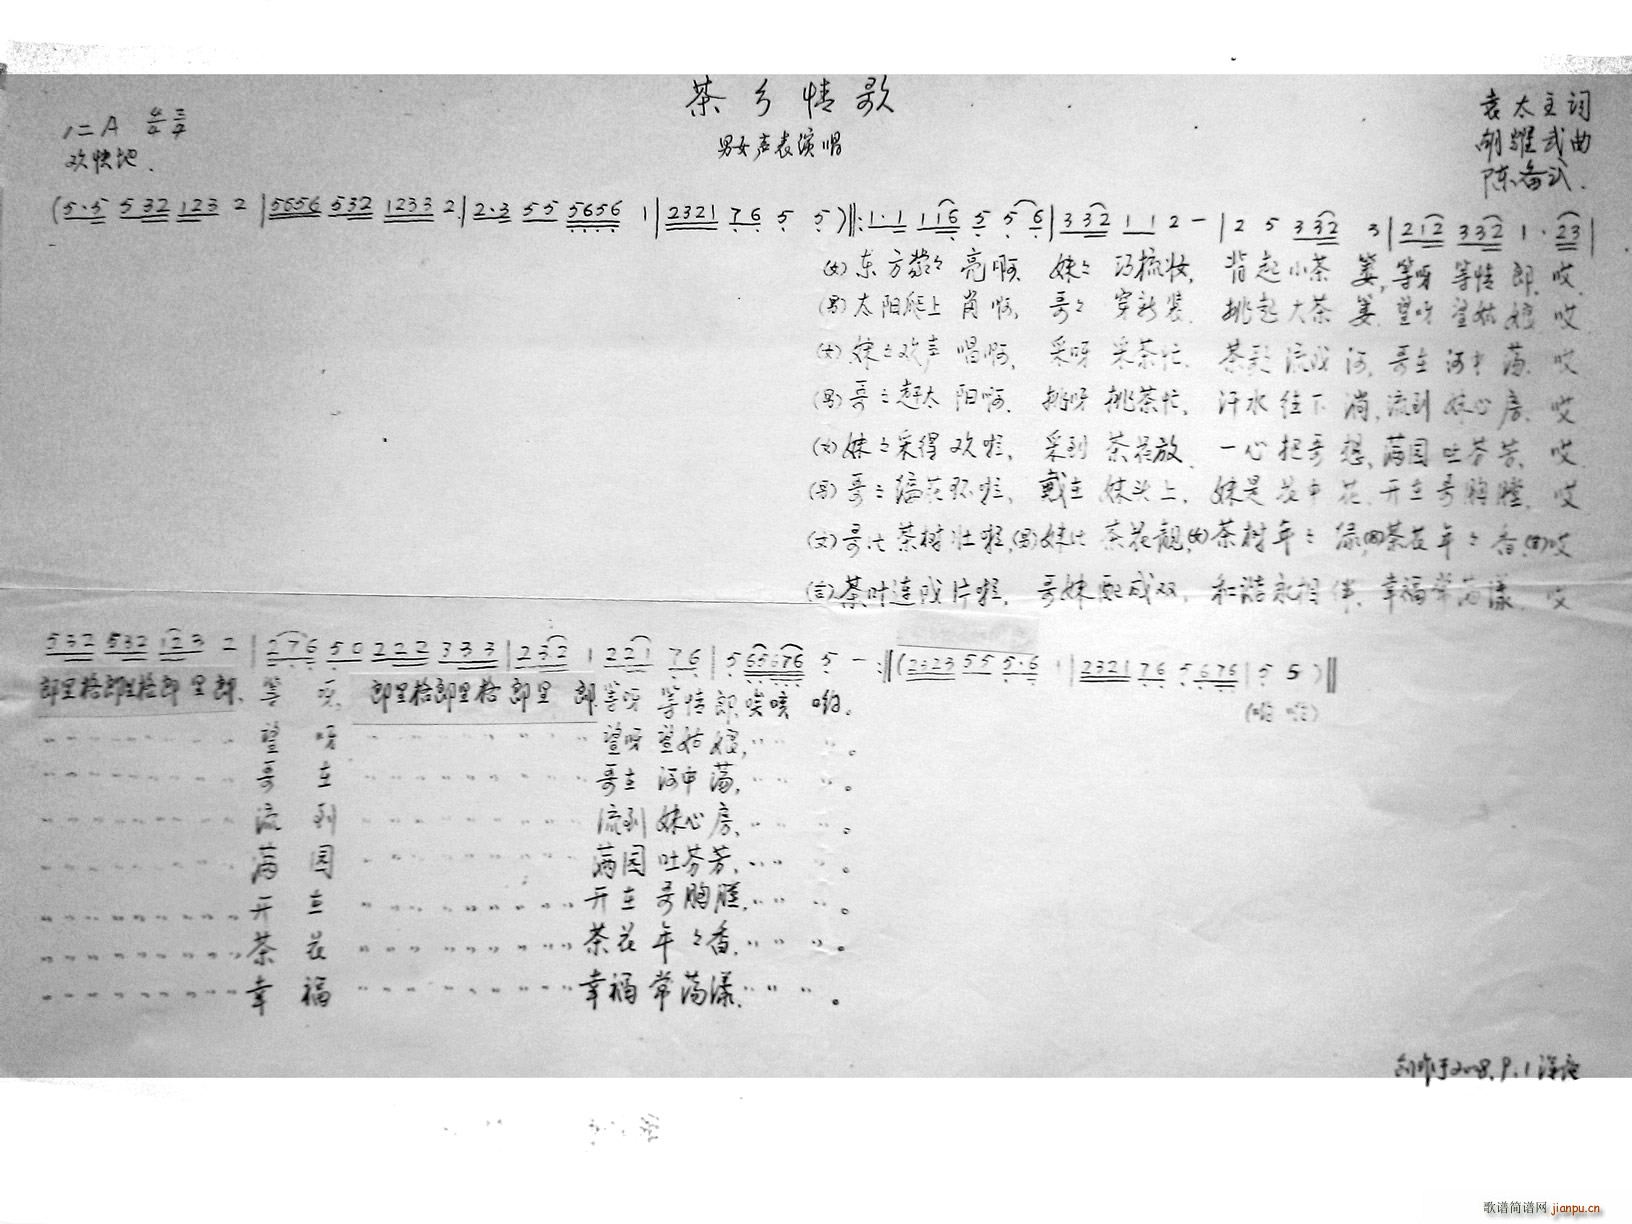 茶乡情歌
男女声表演唱
1=A 4/4 3/4
欢快地.
袁太主词
胡耀武曲
(5·5 532 123 2 | 5656 532 1233 2 | 2·3 55 5656 1 | 2321 76 5 5 ) ‖: 1·1 116 5 5 6 | 3 32 1 1 2 - | 2 5 3 32 3 | 212 332 1 · 23 |
(女) 东方蒙々亮啊. 妹々巧梳妆, 背起小茶篓, 等呀等情郎. 哎
(男) 太阳爬上岗啊, 哥々穿新装. 挑起大茶篓. 望呀望姑娘 哎
(女) 妹々欢声唱啊, 采呀采茶忙. 茶歌流成河, 哥在河中荡. 哎
(男) 哥々赶太阳啊. 挑呀挑茶忙, 汗水往下淌, 流到妹心房. 哎
(女) 妹々采得欢啦, 采到茶花放. 一心把哥想, 满园吐芬芳. 哎
(男) 哥々编花环啦, 戴在妹头上, 妹是花中花. 开在哥胸膛, 哎
(女) 哥比茶树壮啦, (男) 妹比茶花靓, (女) 茶树年々绿, (男) 茶花年々香, (合) 哎
(合) 茶树连成片啦, 哥妹配成双, 和谐永相伴, 幸福常荡漾. 哎
532 532 123 2 | 276 50 222 333 | 232 1 221 76 | 5 65676 5 - :‖ (2323 55 5·6 1 | 2321 76 5 676 | 5 5 ) ‖
郎里格郎里格郎里郎. 等呀 郎里格郎里格郎里郎. 等呀等情郎. 唉咳哟。
(哟哟)
望呀 望呀望姑娘,
哥在 哥在河中荡,
流到 流到妹心房,
满园 满园吐芬芳,
开在 开在哥胸膛,
茶花 茶花年々香,
幸福 幸福常荡漾,
创作于2008.9.1深圳
歌谱简谱网 jianpu.cn